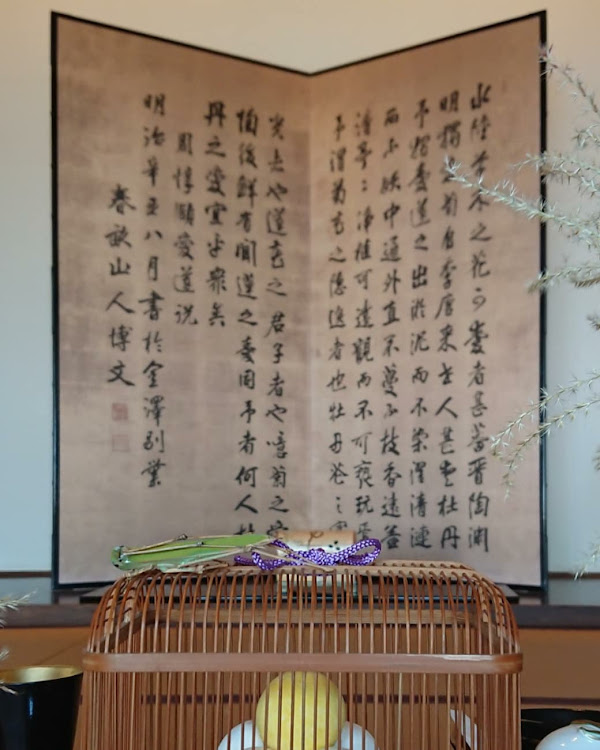 水陸草木之花可愛者甚蕃晋陶淵
明獨愛菊自李唐来世人甚愛牡丹
予獨愛蓮之出淤泥而不染濯清漣
而不妖中通外直不蔓不枝香遠益
清亭々浄植可遠観而不可褻玩焉
予謂菊花之隠逸者也牡丹花之富
貴者也蓮花之君子者也噫菊之愛
陶後鮮有聞蓮之愛同予者何人牡
丹之愛宜乎衆矣
周惇頤愛蓮説
明治辛丑八月書於金澤別業
春畝山人博文